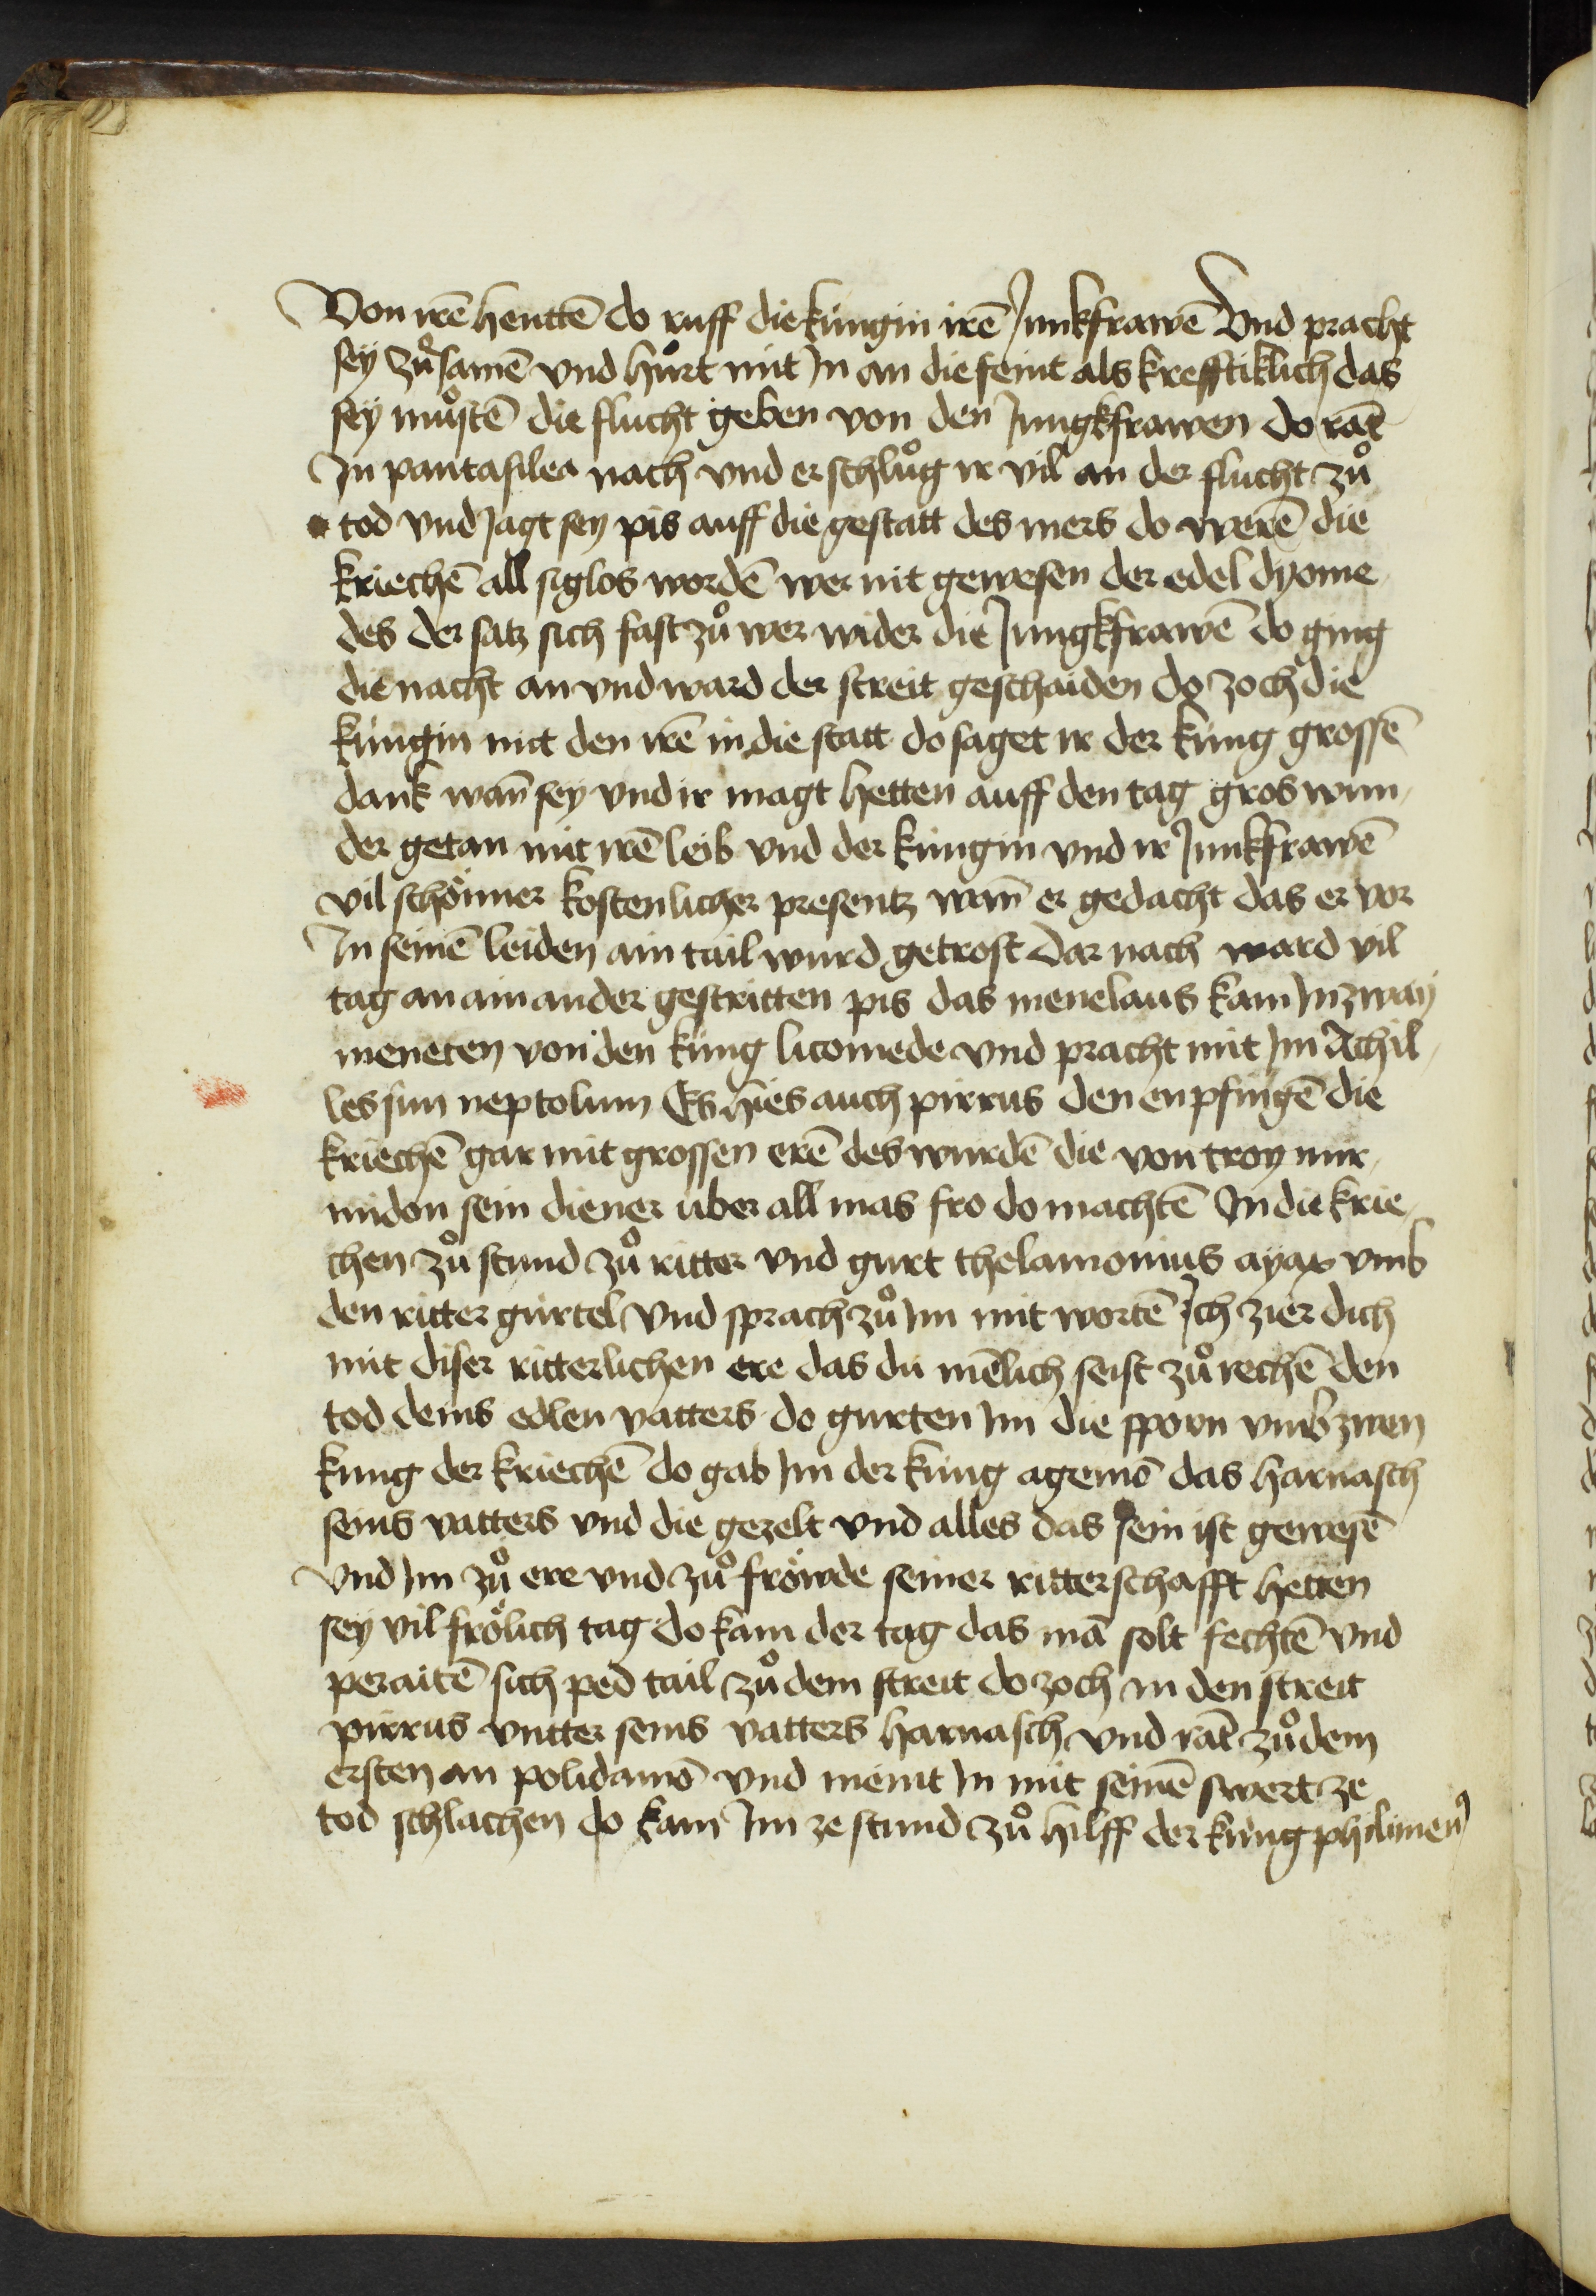 Von irē henttē do ruff die kungin irē Junkfrawē Vnd pracht
sey zuͦsamē vnd hurt mit In an die feint als krefftiklich das
sey muͦstē die flucht geben von den Jungkfrawen do rāt
In pantasilea nach vnd er schluͦg ir vil an der flucht zuͦ
tod vnd Jagt sey pis auff die gestatt des mers do werē die
kriechē all siglos wordē wer nit gewesen der edel dyome
des der satz sich fast zuͦ wer wider die Jungkfrawē do ging
die nacht an vnd ward der streit geschaiden do zoch die
kungin mit den irē in die statt do saget ir der kung grossē
dank wan̄ sey vnd ir magt hetten auff den tag gros wun
der getan mit irē leib vnd der kungin vnd ir Junkfrawē
vil schönner kostenlicher presentz wan̄ er gedacht das er vor
In seinē leiden ain tail wurd getrost dar nach ward vil
tag an ain ander gestritten pis das menelaus kam In zway
moneten von den kung licomede vnd pracht mit Im Achil
les sun neptolum Es hies auch pirrus den enpfingē die
kriechē gar mit grossen erē des wurdē die von troy mir
midon sein diener uber all mas fro do machtē In die krie
chen zuͦ stund zuͦ ritter vnd gurt thelamonius ayax vmb
den ritter gürtel Vnd sprach zuͦ Im mit wortē Ich zier dich
mit diser ritterlichen ere das du mēlich seist zuͦ rechē den
tod deins edlen vatters do gurten Im die sporn vmb zwen
kung der kriechē do gab Im der kung agemō das harnasch
seins vatters vnd die gezelt vnd alles das sein ist gewesē
Vnd Im zuͦ ere vnd zuͦ fröwde seiner ritterschafft hetten
sey vil frölich tag do kam der tag das mā solt fechtē vnd
peraitē sich ped tail zuͦ dem streit do zoch in den streit
pirrus vntter seins vatters harnasch vnd rāt zuͦ dem
ersten an polidamō vnd meint In mit seinē swert ze
tod schlachen do kam Im ze stund zuͦ hilff der kung philimen